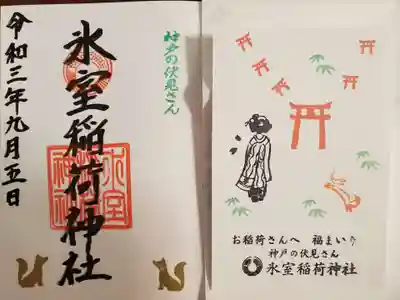 神戸の伏見さん
氷室稲荷神社
令和三年九月五日
お稲荷さんへ 福まいり
神戸の伏見さん
氷室稲荷神社